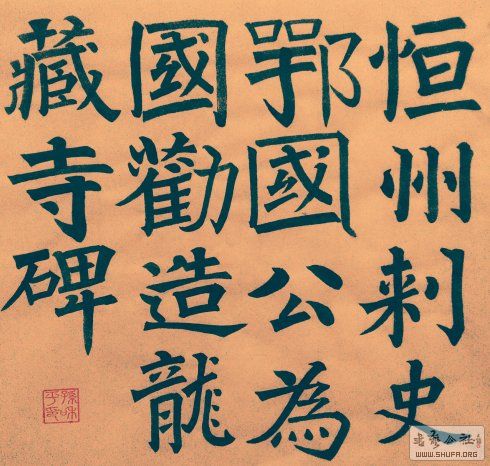 恒州刺史
鄂國公為
國勸造龍
藏寺碑
WWW.SHUFA.ORG